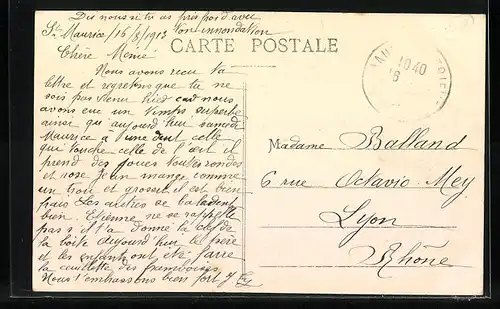 Dis nous si tu as pris pos d'avec
St Maurice / 16/8/1913 ton innondation
CARTE POSTALE
Chère Mémé
Nous avons recu ta
lettre et regretons que tu ne
sois pas venue hier car nous
avons eu un temps superbe
ainsi qu'aujourd'hui samedi
Maurice à l'une dent celle
qui touche celle de l'œil il
prend des joues toutes rondes
et rose Jean mange comme
un trou et grossit il est bien
frais Les autres se baladent
bien. Etienne ne se rappelle
pas s'il t'a donné la clef de
la boîte aujourd'hui le père
et les enfants ont été faire
la cueillette des framboises
Nous t'embrassons bien fort
10 40
16
Madame Balland
6 rue Octavio-Mey
Lyon
Rhône